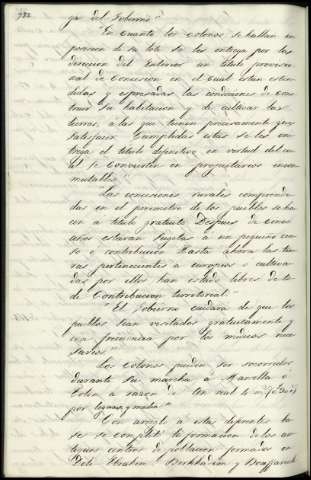 782
go del Gobierno."
"En cuanto los colonos se hallan en
posesion de su lote se les entrega por la
direccion del interior un título provisio
nal de concesion en el cual estan esten
didas y espresadas las condiciones de cons
truir su habitacion y de cultivar las
tierras, a las que tienen precisamente que
satisfacer. Cumplidas estas se les en
trega el titulo definitivo en virtud del cu
al se convierten en propietarios incon
mutables."
"Las concesiones rurales comprendi
das en el perimetro de los pueblos se ha
cen a titulo gratuito. Despues de
años estaran sujetas a un pequeño cen
so ó contribucion. Hasta ahora las tier
ras pertenecientes a europeos y cultiva
das por ellos han estado libres de to
da contribucion territorial."
"El Gobierno cuidara de que los
pueblos sean visitados gratuitamente y
con frecuencia por los médicos mi
litares."
"Los colonos pueden ser socorridos
durante su marcha á Marsella ó
Tolon a razon de
por legua y media."
"Con arreglo a estas disposi
se completó la formacion de los an
tiguos centros de poblacion formados en
Dely Ibrahim, Birkhadem y Bouffarick